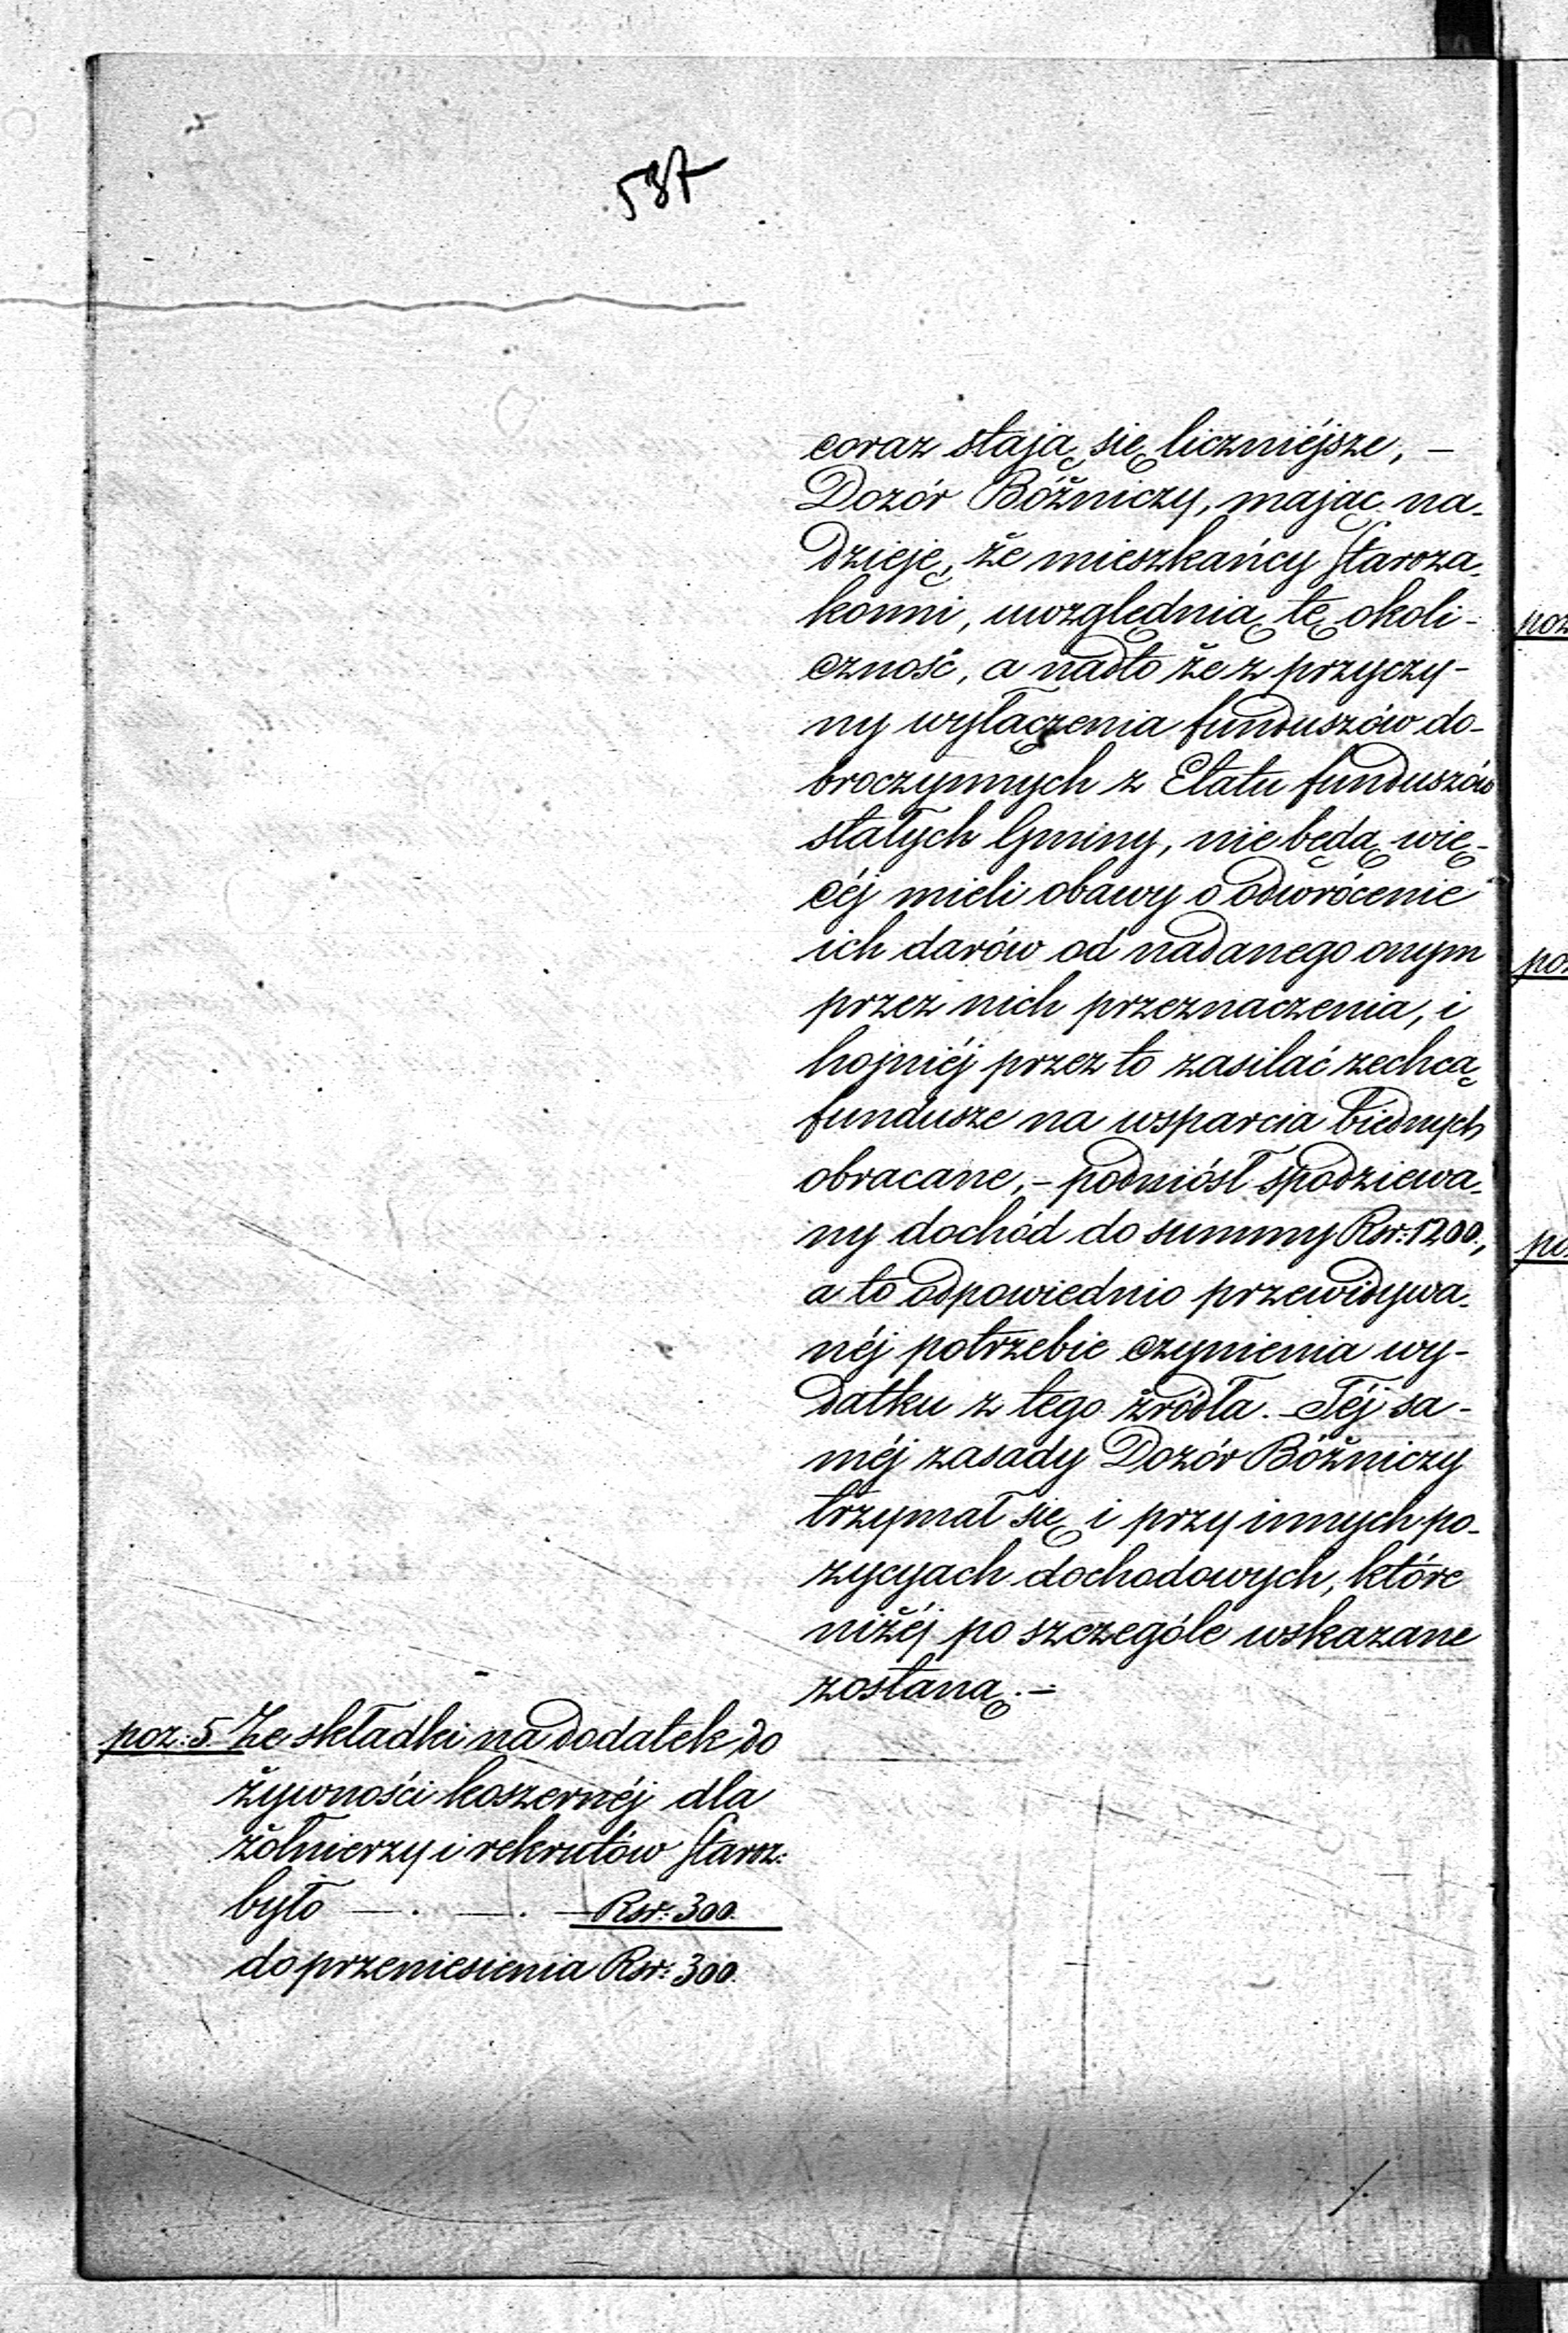 537
coraz stają się liczniéjsze, —
Dozór Bóżniczy, mając na-
dzieję, że mieszkańcy Staroza-
konni, uwzględnią tę okoli-
czność, a nadto że z przyczy-
ny wyłączenia funduszów do-
broczynnych z Etatu funduszów
stałych Gminy, nie będą wię-
céj mieli obawy o odwrócenie
ich darów od nadanego onym
przez nich przeznaczenia, i
hojniéj przez to zasilać zechcą
fundusze na wsparcia biednych
obracane, – podniósł spodziewa-
ny dochód do summy Rsr: 1200.,
a to odpowiednio przewidywa-
néj potrzebie czynienia wy-
datku z tego źródła. – Téj sa-
méj zasady Dozór Bóżniczy
trzymał się i przy innych po-
zycyach dochodowych, które
niżéj po szczególe wskazane
zostaną. —
poz: 5. Ze składki na dodatek do
żywności koszernéj dla
żołnierzy i rekrutów Staroz:
było — . — . — Rsr: 300.
do przeniesienia Rsr: 300.
poz
poz
po